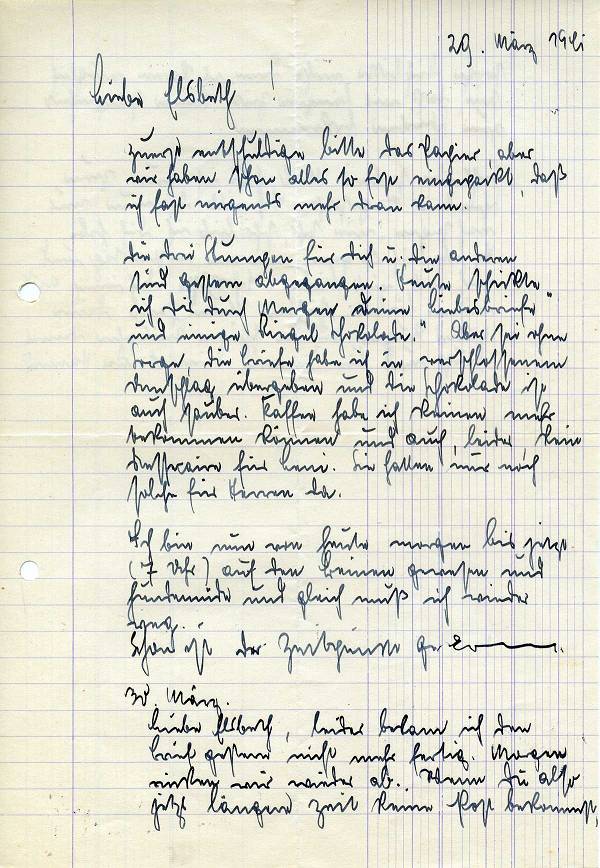 29. März 1941
Liebe Elsbeth!
Zuerst entschuldige bitte das Papier, aber
wir haben schon alles so fest eingepackt, daß
ich fast nirgends mehr dran kann.
Die drei für Dich u. die anderen
sind gestern abgegangen. Heute schickte
ich Dir durch Mergen „Deine Liebesbriefe"
und einige Riegel Schokolade." Aber sei ohne
Sorge, die Briefe habe ich in verschlossenem
Umschlag übergeben und die Schokolade ist
auch sauber. Kaffee habe ich keinen mehr
bekommen können und auch, leider, kein
Necessaire für Leni. Sie hatten nur noch
solche für Herren da.
Ich bin nun von heute morgen bis jetzt
(7 Uhr) auf den Beinen gewesen und
hundemüde und gleich muß ich wieder
weg.
Schon ist der
30. März.
Liebe Elsbeth, leider bekam ich den
Brief gestern nicht mehr fertig. Morgen
rücken wir wieder ab. Wenn Du also
jetzt längere Zeit keine Post bekommst,